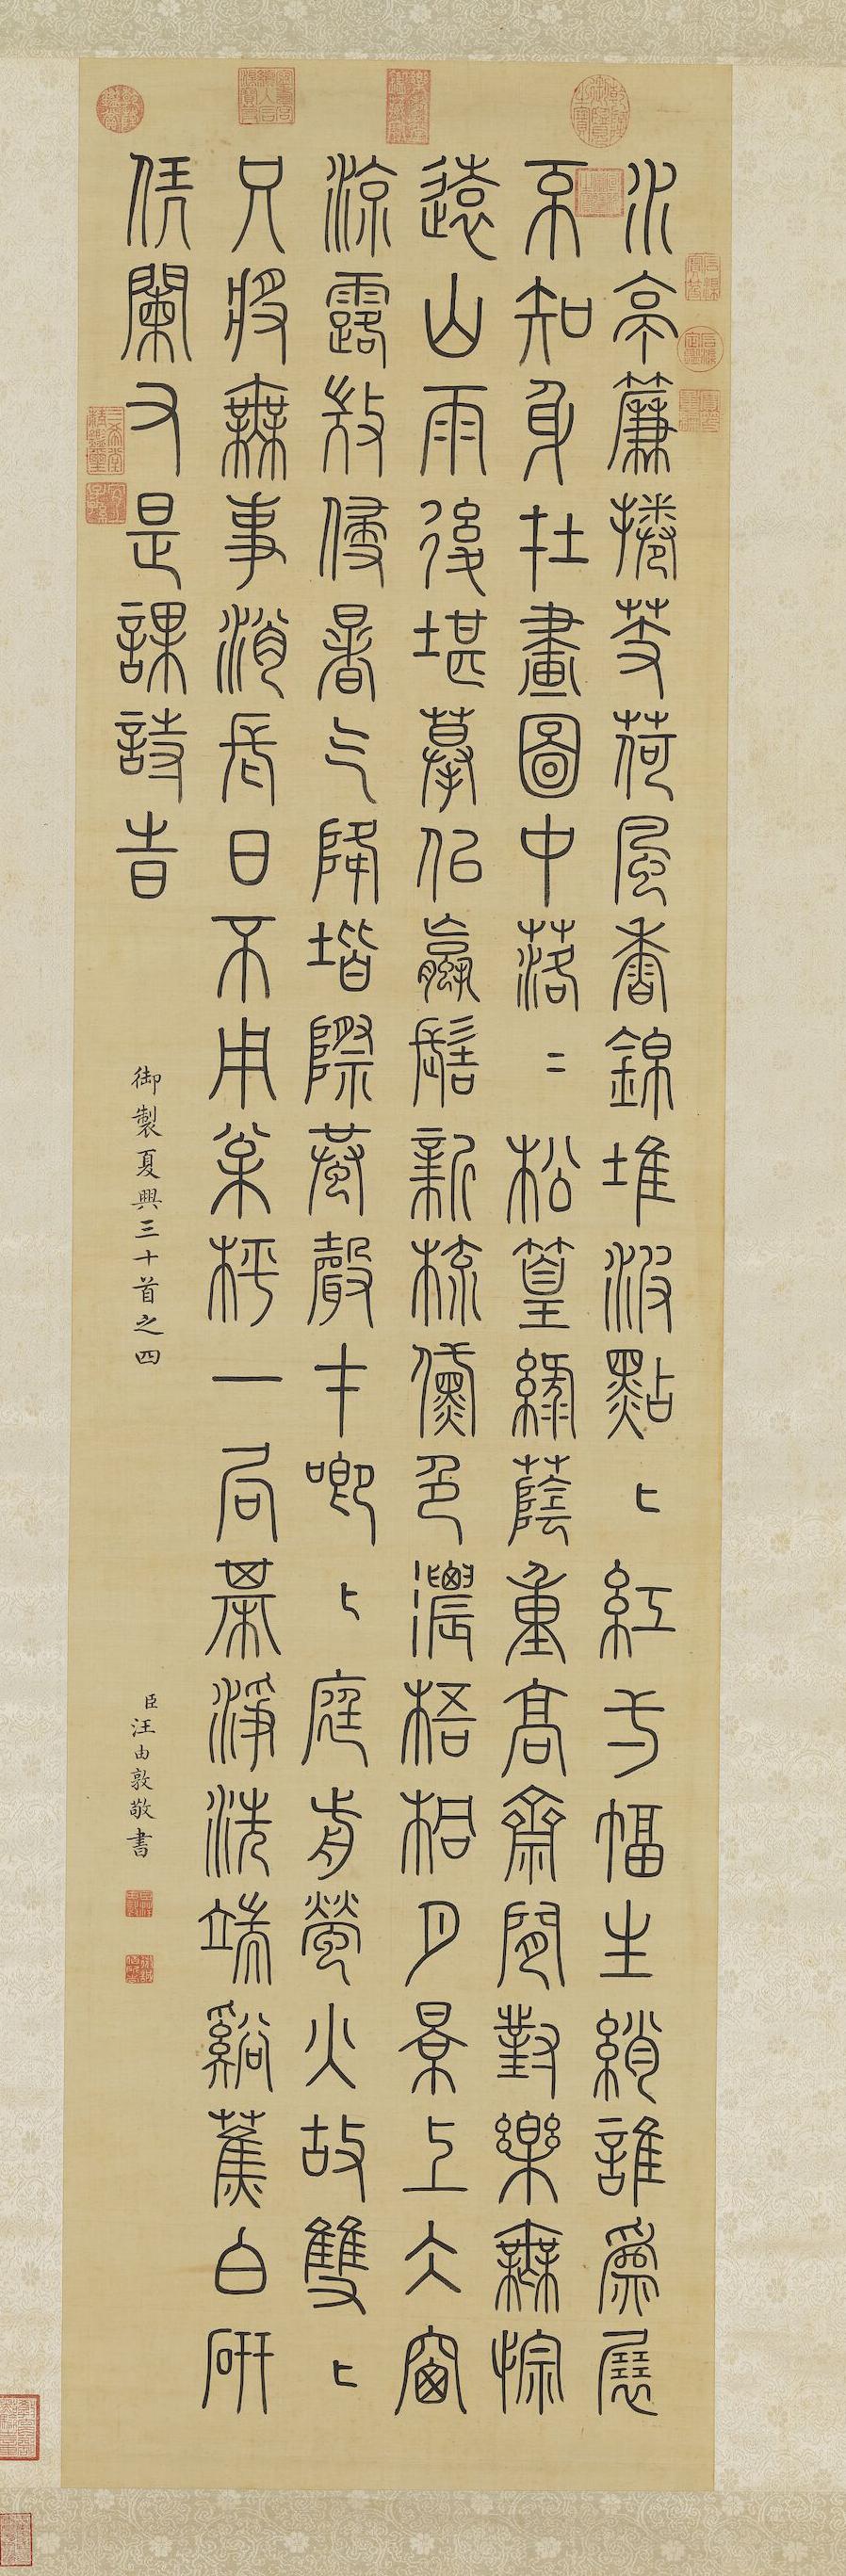 水亭簾捲芰荷風香錦堆波點ヒ紅方幅生綃誰為展
不知身在畫圖中落二松篁綠蔭重高齋閒對樂無悰
遠山雨後堪摹似嬴髻新梳黛色濃梧桐月景上大窗
涼露教侵暑气降階際蛩聲才唧ヒ庭前螢火故雙ヒ
只將無事消長日不用楸枰一局棊淨洗端谿蕉白研
凭闌又是課詩時
御製夏興三十首之四
臣汪由敦敬書